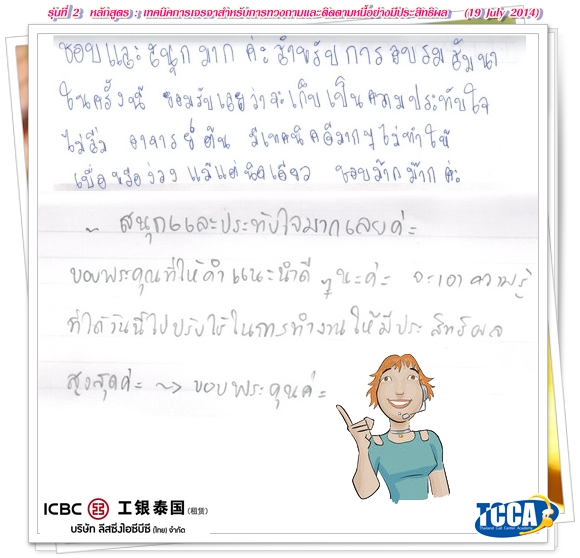 รุ่นที่ 2 หลักสูตร : เทคนิคการเจรจาสำหรับการทวงถามและติดตามหนี้อย่างมีประสิทธิผล (19 July 2014)
ชอบและสนุกมาก ค่ะสำหรับการอบรมสัมนา
ในครั้งนี้ ยอมรับเลยว่าจะเก็บเป็นความประทับใจ
ไม่ลืม อาจารย์ต้น มีเทคนิคดีมากๆ ไม่ทำให้
เบื่อหรือง่วง แม้แต่นิดเดียว ชอบม๊ากม๊ากค่ะ
~ สนุกและประทับใจมากเลยค่ะ
ขอบพระคุณที่ให้คำแนะนำดี ๆ นะค่ะ จะเอาความรู้
ที่ได้วันนี้ไปปรับใช้ในการทำงานให้มีประสิทธิผล
สูงสุดค่ะ ~> ขอบพระคุณค่ะ
ICBC 工银泰国(租赁)
บริษัท ลีสซิ่งไอซีบีซี (ไทย) จำกัด
TCCA
Thailand Call Center Academy